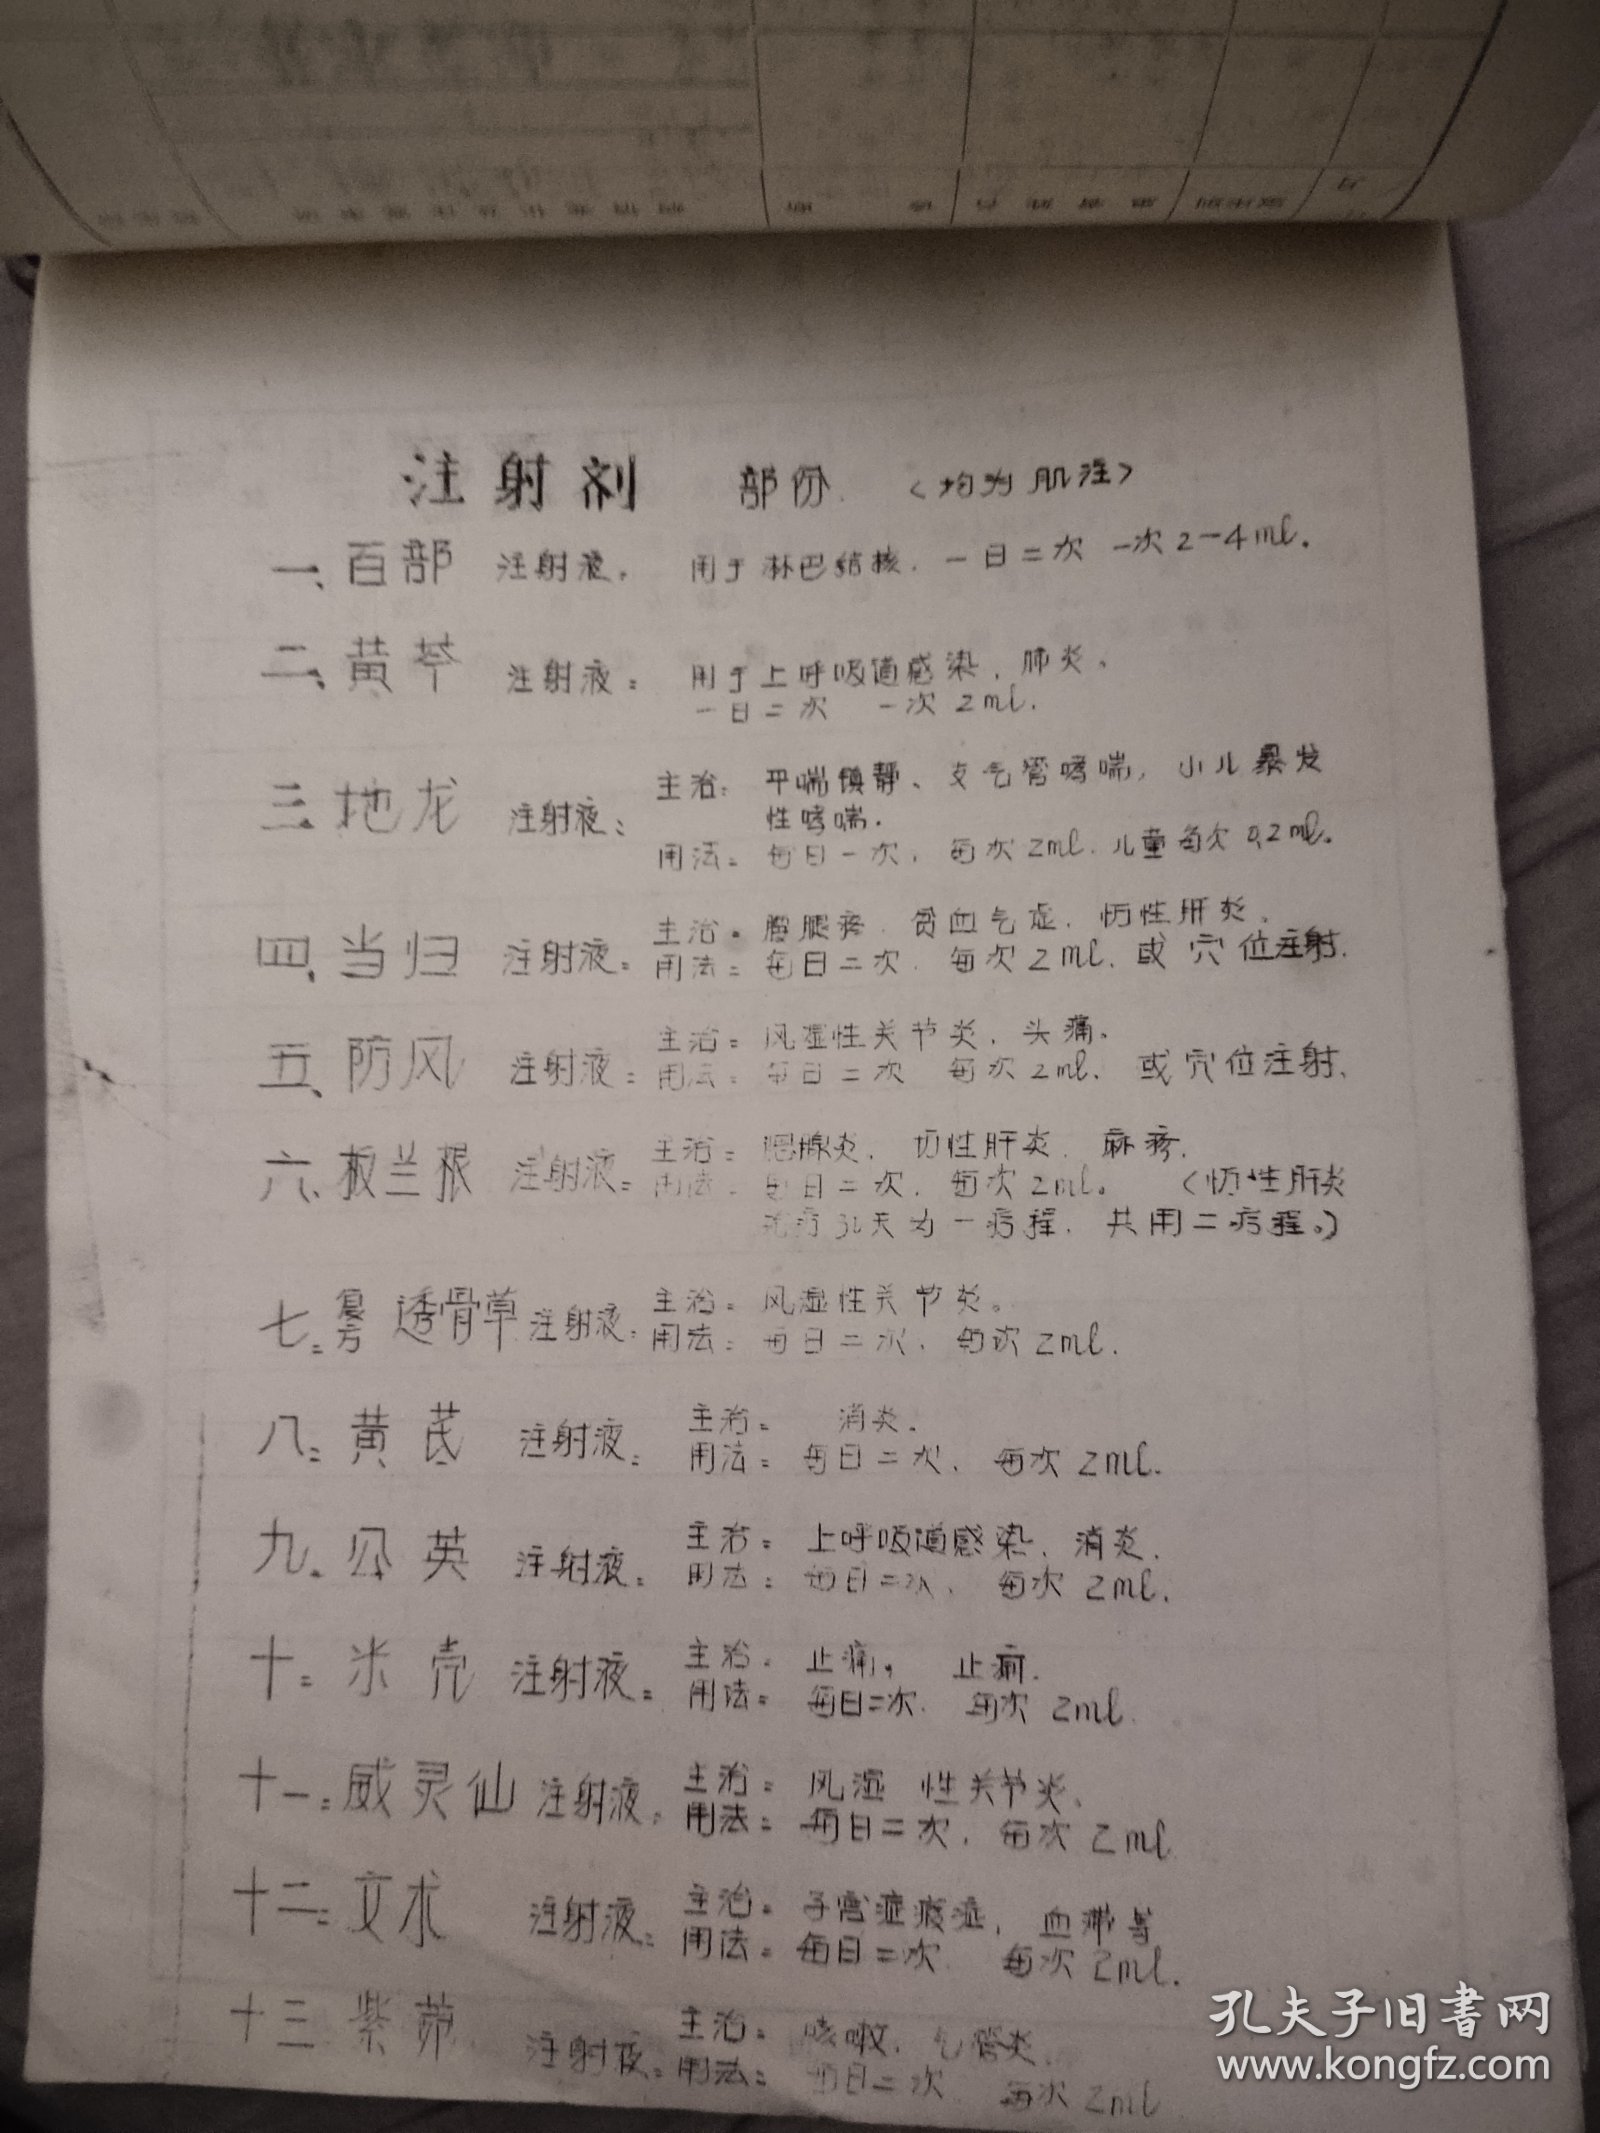 注射剂 部份.〈均为肌注〉
一、百部 注射液. 用于淋巴结核. 一日二次 一次2-4ml.
二、黄芩 注射液: 用于上呼吸道感染、肺炎.
一日二次 一次2ml.
三.地龙 注射液: 主治: 平喘镇静、支气管哮喘, 小儿暴发
性哮喘.
用法: 每日一次, 每次2ml. 儿童每次0.2ml.
四、当归 注射液: 主治: 腰腿疼. 贫血气虚.
用法: 每日二次. 每次2ml. 或穴位注射.
五、防风 注射液: 主治: 风湿性关节炎、头痛.
用法: 每日二次 每次2ml. 或穴位注射、
六、板兰根 注射液: 主治: 腮腺炎、 肝炎. 麻疹.
用法: 每日二次. 每次2ml。 ( 性肝炎
治疗 天为一疗程. 共用二疗程。)
七: 复方 透骨草 注射液: 主治: 风湿性关节炎。
用法: 每日二次. 每次2ml.
八: 黄芪 注射液: 主治: 消炎.
用法: 每日二次. 每次2ml.
九. 公英 注射液: 主治: 上呼吸道感染、消炎.
用法: 每日二次. 每次2ml.
十: 米壳 注射液: 主治: 止痛. 止
用法: 每日二次. 每次2ml.
十一: 威灵仙 注射液: 主治: 风湿 性关节炎、
用法: 每日二次. 每次2ml
十二: 文术 注射液: 主治: 子宫 , 血滞等
用法: 每日二次 每次2ml.
十三 紫菀 注射液: 主治: 咳嗽. 气管炎.
用法: 每日二次 每次2ml
孔夫子旧书网
www.kongfz.com